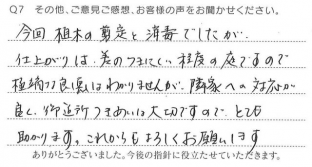 Q7 その他、ご意見ご感想、お客様の声をお聞かせください。
今回 植木の剪定と消毒でしたが、
仕上がりは、差のつきにくい程度の庭ですので
極端な良悪はわかりませんが、隣家への対応が
良く、御近所づきあいは大切ですので、とても
助かります。これからもよろしくお願いします
ありがとうございました。今後の指針に役立たせていただきます。